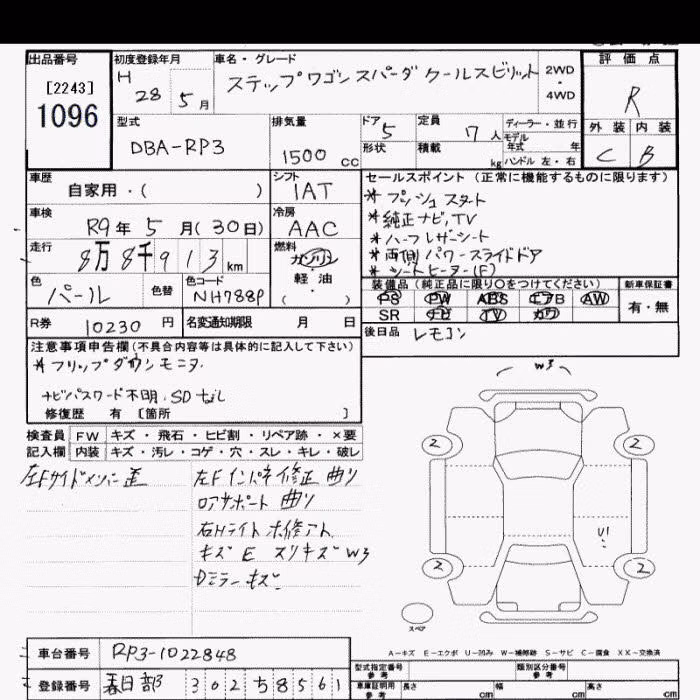 出品番号
[2243]
1096
初度登録年月
H 28 5 月
車名・グレード
ステップワゴン スパーダ クールスピリット
2WD
・
4WD
評価点
R
外装 内装
C B
型式
DBA-RP3
排気量
1500 cc
ドア 5
形状
定員 7 人
積載 kg
ディーラー・並行
モデル年式 年
ハンドル 左・右
車歴
自家用・( )
シフト
IAT
車検
R9年 5 月(30日)
冷房
AAC
走行
8万8千913km
燃料
ガソリン
・
軽油
( )
色
パール
色替
色コード
NH788P
R券 10230 円
名変通知期限 月 日
セールスポイント(正常に機能するものに限ります)
* プッシュスタート
* 純正ナビ,TV
* ハーフレザーシート
* 両側パワースライドドア
* シートヒーター(F)
装備品(純正品に限り○をつけてください)
PS PW ABS エアB AW
SR ナビ TV カワ
新車保証書
有・無
後日品 レモコン
注意事項申告欄(不具合内容等は具体的に記入して下さい)
* フリップダウンモニタ.
ナビパスワード不明.SDなし
修復歴 有 [箇所 ]
検査員 FW キズ・飛石・ヒビ割・リペア跡・×要
記入欄 内装 キズ・汚レ・コゲ・穴・スレ・キレ・破レ
左Fサイドメンバー歪
左Fインパネ修正 曲り
ロアサポート 曲り
右Hライト ホ修アト
キズ E スリキズ W3
Dミラーキズ
W3
2 2
U1
2 2
スペア
A-キズ E-エクボ U-凹み W-補修跡 S-サビ C-腐食 XX-交換済
車台番号 RP3-1022848
登録番号 春日部 302 ち 8561
型式指定番号
参考
類別区分番号
参考
車庫証明用
参考
長さ cm 幅 cm 高さ cm